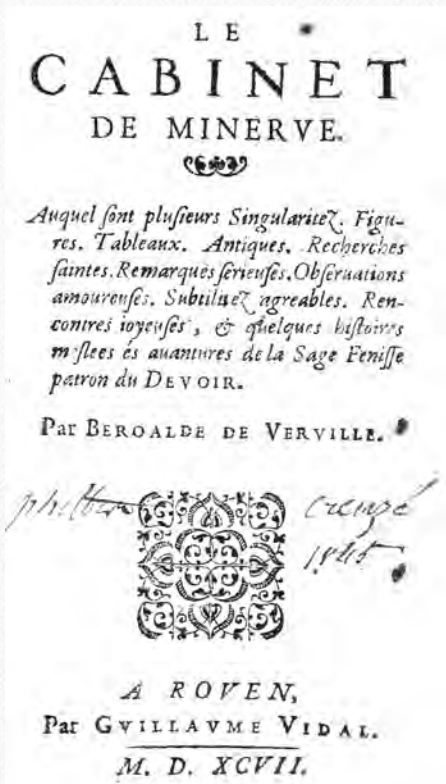 LE
CABINET
DE MINERVE.
Auquel ſont pluſieurs Singularitez. Figu-
res. Tableaux. Antiques. Recherches
ſaintes. Remarques ſerieuſes. Obſeruations
amoureuſes. Subtilitez agreables. Ren-
contres ioyeuſes, & quelques hiſtoires
meſlees és auantures de la Sage Feniſſe
patron du DEVOIR.
Par BEROALDE DE VERVILLE.
creuzé
A ROVEN,
Par GVILLAVME VIDAL.
M. D. XCVII.